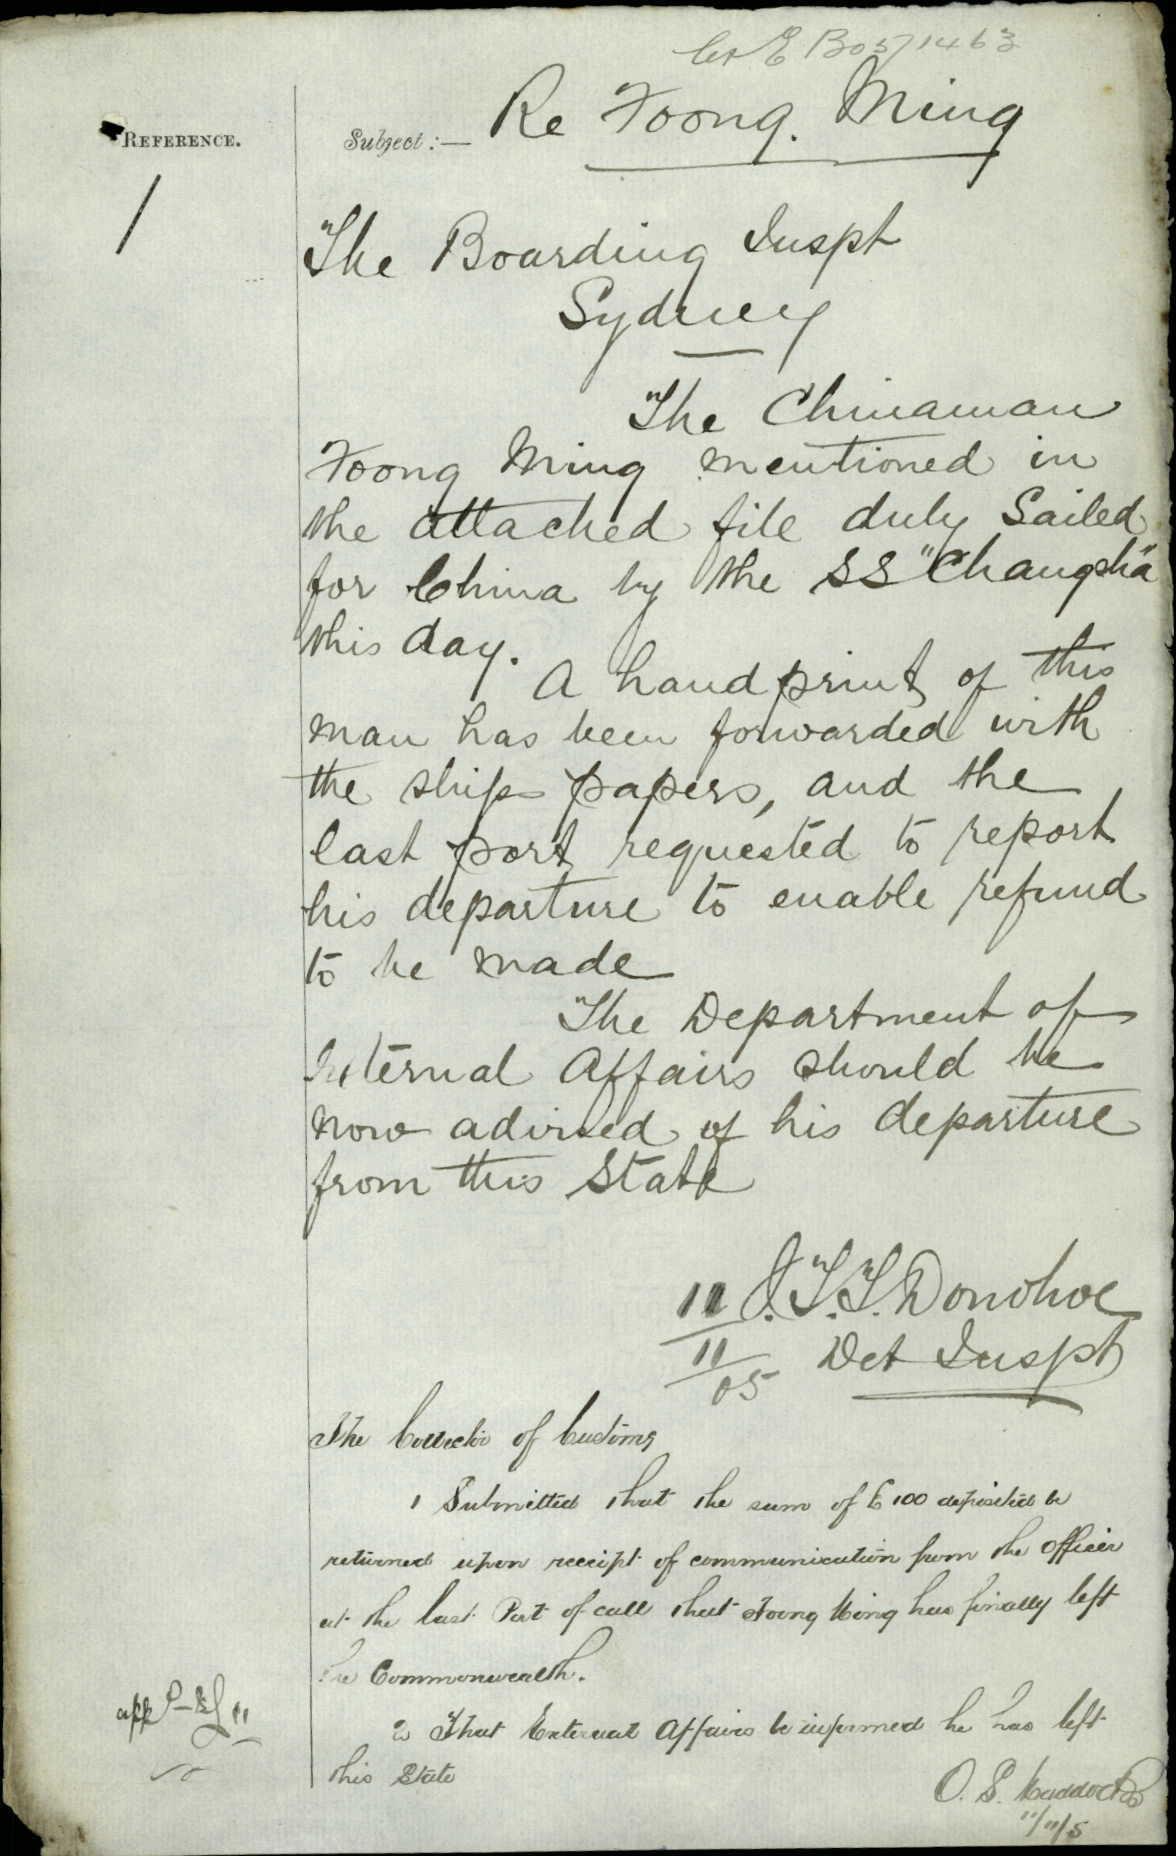 B05/1463
REFERENCE.
Subject:— Re Foong. Ming
1
The Boarding Inspt
Sydney
The Chinaman
Foong Ming mentioned in
the attached file duly Sailed
for China by the SS "Changsha"
this day.
A hand print of this
man has been forwarded with
the ships papers, and the
last port requested to report
his departure to enable refund
to be made
The Department of
Internal Affairs should be
now advised of his departure
from this State
J.T.T. Donohoe
11/11/05 Det Inspt
The Collector of Customs
1 Submitted that the sum of £100 deposited be
returned upon receipt of communication from the Officer
at the last Port of call that Foong Ming has finally left
the Commonwealth.
2 That External Affairs be informed he has left
this State
O. S. Maddocks
11/11/5